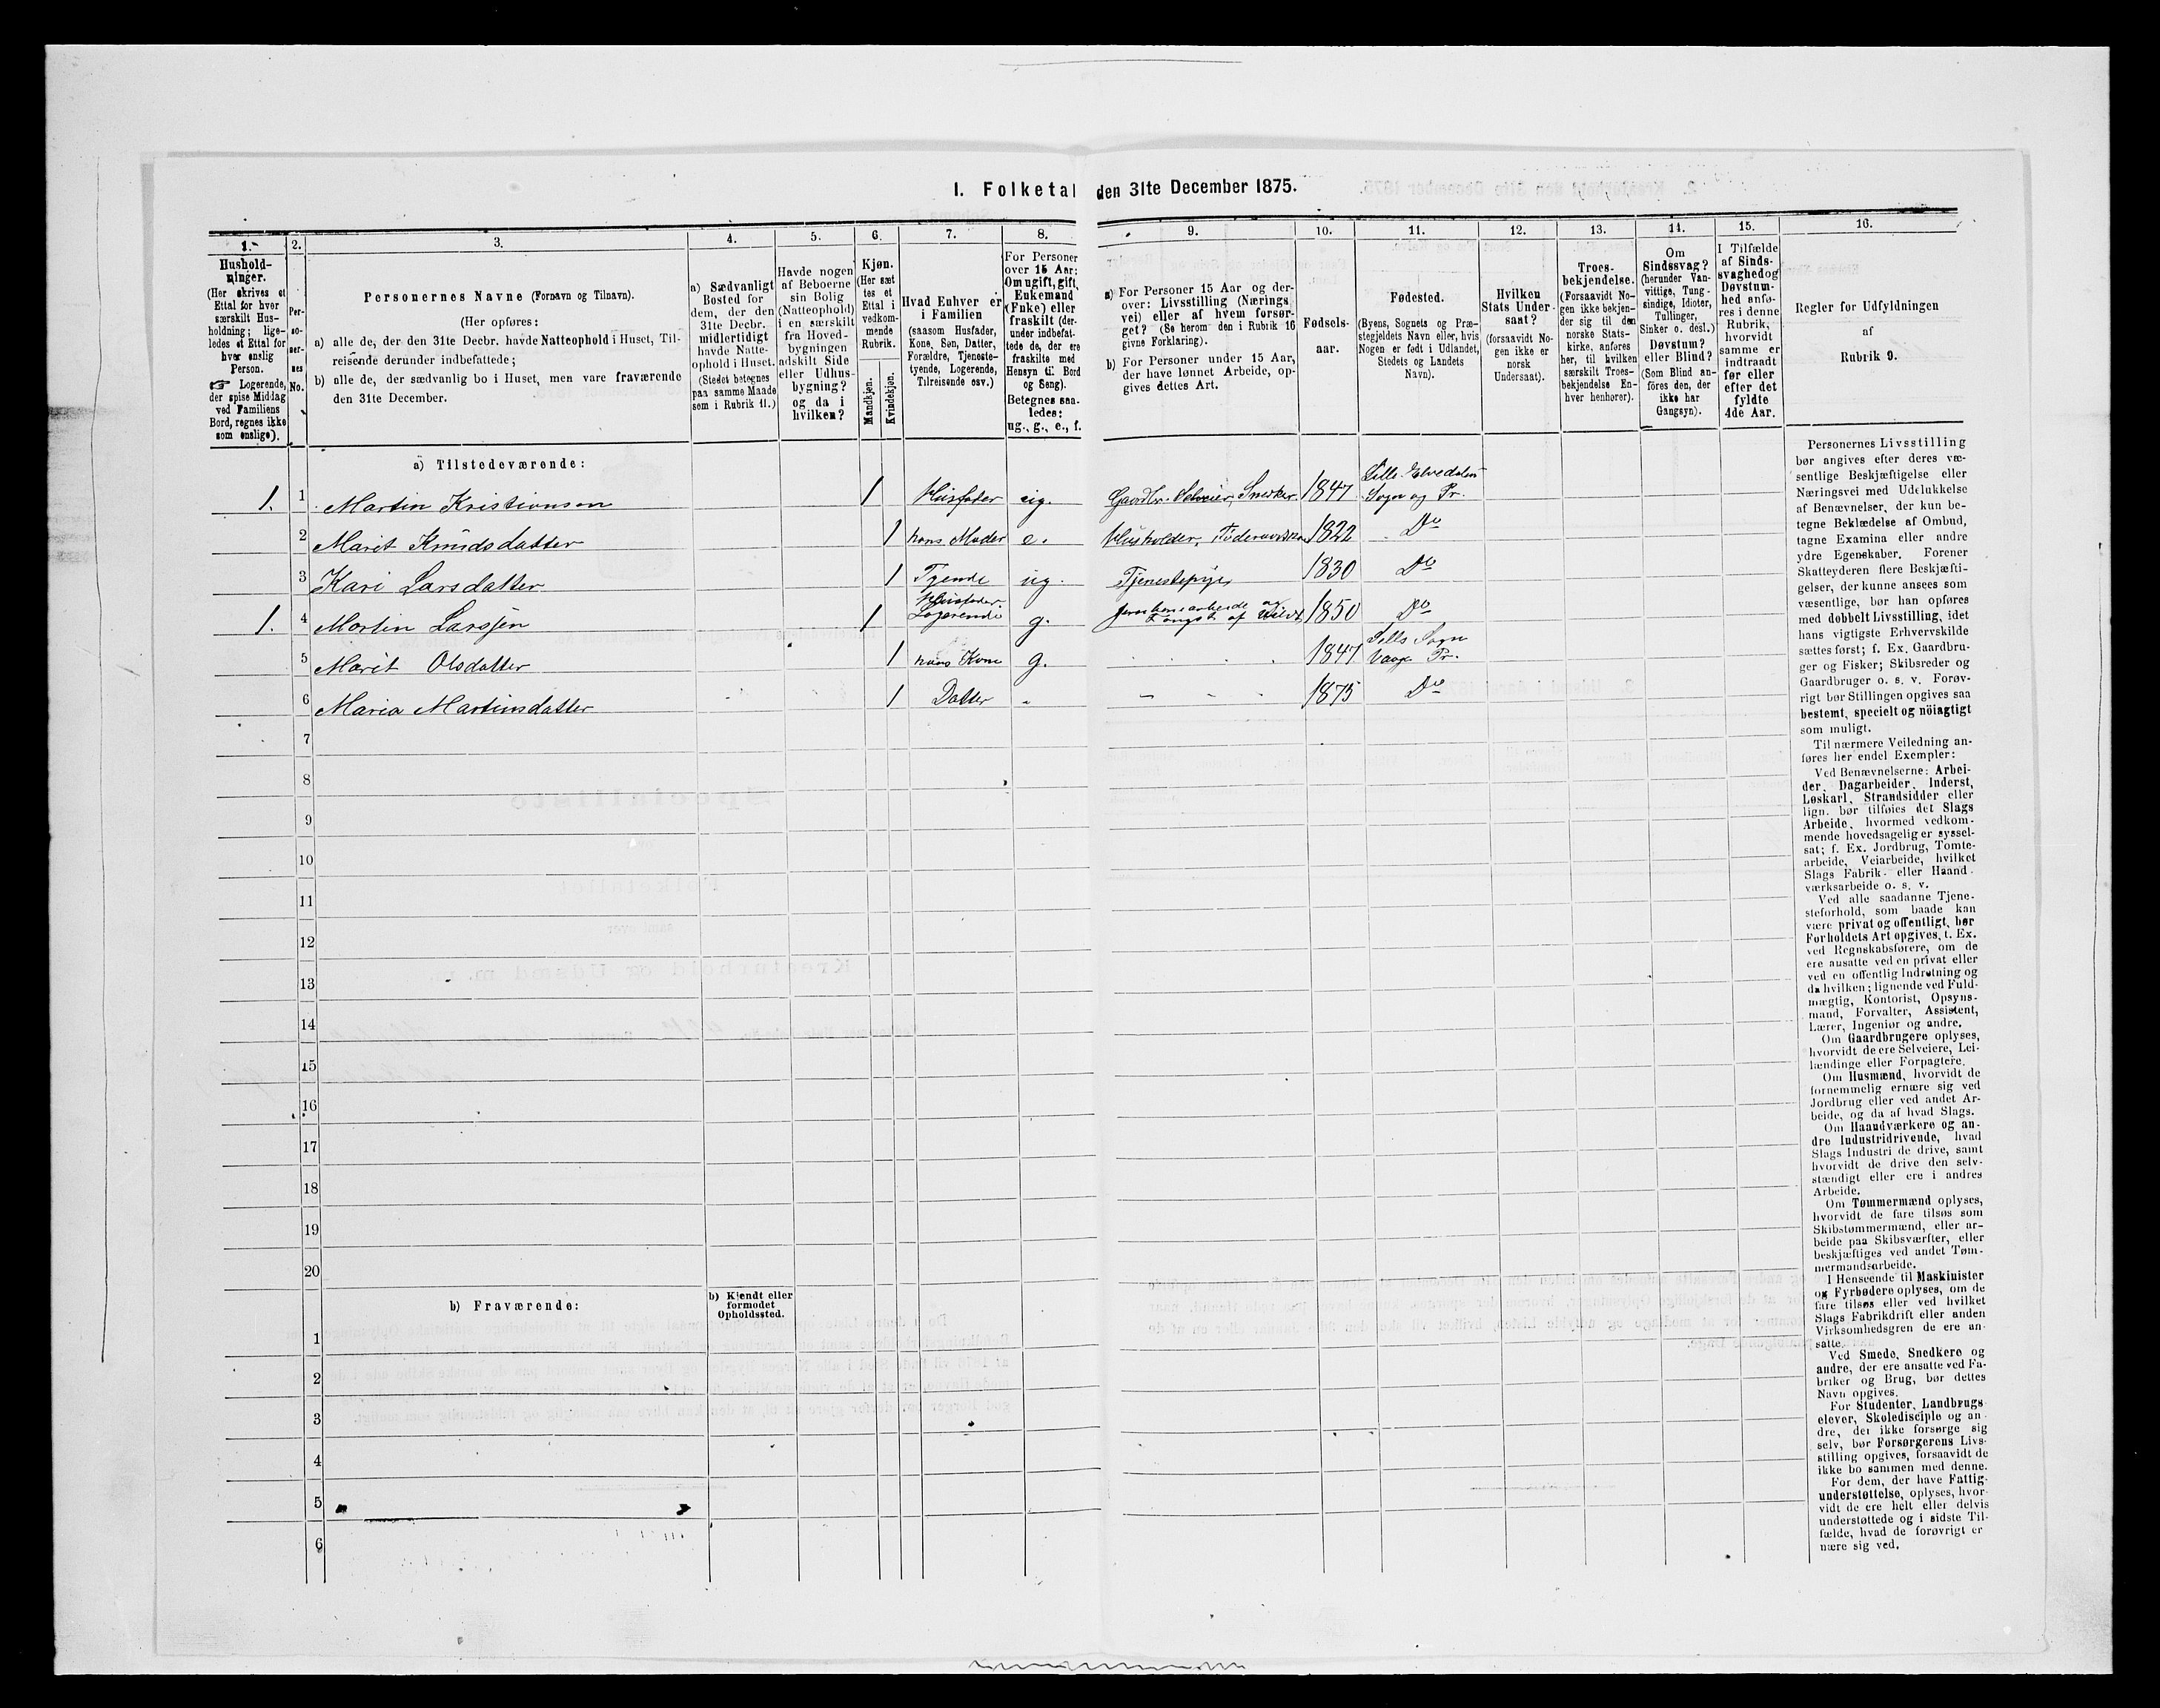 1. Folketal den 31te December 1875.
1.
Hushold-
ninger.
(Her skrives et
Ettal for hver
særskilt Hus-
holdning; lige-
ledes et Ettal for
hver enslig
Person.
☞ Logerende,
der spise Middag
ved Familiens
Bord, regnes ikke
som enslige).
2.
Per-
so-
ner-
nes
No.
3.
Personernes Navne (Fornavn og Tilnavn).
(Her opføres:
a) alle de, der den 31te Decbr. havde Natteophold i Huset, Til-
reisende derunder indbefattede;
b) alle de, der sædvanlig bo i Huset, men vare fraværende
den 31te December.
4.
a) Sædvanligt
Bosted for
dem, der den
31te Decbr.
midlertidigt
havde Natte-
ophold i Huset.
(Stedet betegnes
paa samme Maade
som i Rubrik 11.)
5.
Havde nogen
af Beboerne
sin Bolig
(Natteophold)
i en særskilt
fra Hoved-
bygningen
adskilt Side
eller Udhus-
bygning?
og da i
hvilken?
6.
Kjøn.
(Her sæt
tes et
Ettal i
vedkom-
mende
Rubrik.
Mandkjøn.
Kvindekjøn.
7.
Hvad Enhver er
i Familien
(saasom Husfader,
Kone, Søn, Datter,
Forældre, Tjeneste-
tyende, Logerende,
Tilreisende osv.)
8.
For Personer
over 15 Aar:
Om ugift, gift,
Enkemand
(Enke) eller
fraskilt (der-
under indbefat-
tede de, der ere
fraskilte med
Hensyn til Bord
og Seng).
Betegnes saa-
ledes:
ug., g., e., f.
9.
a) For Personer 15 Aar og der-
over: Livsstilling (Nærings
vei) eller af hvem forsør-
get? (Se herom den i Rubrik 16
givne Forklaring).
b) For Personer under 15 Aar,
der have lønnet Arbeide, op-
gives dettes Art.
10.
Fødsels-
aar.
11.
Fødested.
(Byens, Sognets og Præ-
stegjeldets Navn eller, hvis
Nogen er født i Udlandet,
Stedets og Landets
Navn).
12.
Hvilken
Stats Under-
saat?
(forsaavidt No-
gen ikke er
norsk
Undersaat).
13.
Troes-
bekjendelse.
(Forsaavidt No-
gen ikke bekjen-
der sig til den
norske Stats-
kirke, anføres
her, til hvilken
særskilt Troes-
bekjendelse En-
hver henhører).
14.
Om
Sindssvag?
(herunder Van-
vittige, Tung-
sindige, Idioter,
Tullinger,
Sinker o. desl.)
Døvstum?
eller Blind?
(Som Blind an-
føres den, der
ikke har
Gangsyn).
15.
I Tilfælde
af Sinds-
svaghed og
Døvstum-
hed anfø-
res i denne
Rubrik,
hvorvidt
samme er
indtraadt
før eller
efter det
fyldte
4de Aar.
16.
Regler for Udfyldningen
af
Rubrik 9.
a) Tilstedeværende:
1. 1 Martin Kristiansen 1 Husfader ug. Gaardbr. Selveier, Snedker 1847 Lille-Elvedalen
Sogn og Pr.
2 Marit Knudsdatter 1 hans Moder e. Husholder, 1822 Do
3 Kari Larsdatter 1 Tyende ug. Tjenestepige 1830 Do
1. 4 Martin Larsjen 1 Husfader
Logerende g. 1850 Do
5 Marit Olsdatter 1 hans Kone g. 1847 Sells Sogn
Vaage Pr.
6 Maria Martinsdatter 1 Datter - - - 1875 Do
7
8
9
10
11
12
13
14
15
16
17
18
19
20
b) Fraværende:
b) Kjendt eller
formodet
Opholdssted.
1
2
3
4
5
6
Personernes Livsstilling
bør angives efter deres væ-
sentlige Beskjæftigelse eller
Næringsvei med Udelukkelse
af Benævnelser, der kun be-
tegne Beklædelse af Ombud,
tagne Examina eller andre
ydre Egenskaber. Forener
Skatteyderen flere Beskjæfti-
gelser, der kunne ansees som
væsentlige, bør han opføres
med dobbelt Livsstilling, idet
hans vigtigste Erhvervskilde
sættes først; f. Ex. Gaardbru-
ger og Fisker; Skibsreder og
Gaardbruger o. s. v. Forøv-
rigt bør Stillingen opgives saa
bestemt, specielt og nöiagtigt
som muligt.
Til nærmere Veiledning an-
føres her endel Exempler:
Ved Benævnelserne: Arbei-
der, Dagarbeider, Inderst,
Løskarl, Strandsidder eller
lign. bør tilføies det Slags
Arbeide, hvormed vedkom-
mende hovedsagelig er syssel-
sat; f. Ex. Jordbrug, Tomte-
arbeide, Veiarbeide, hvilket
Slags Fabrik- eller Haand-
værksarbeide o. s. v.
Ved alle saadanne Tjene-
steforhold, som baade kan
være privat og offentligt, bør
Forholdets Art opgives, t. Ex.
ved Regnskabsførere, om de
ere ansatte ved en privat eller
ved en offentlig Indretning og
da hvilken; lignende ved Fuld-
mægtig, Kontorist, Opsyns-
mand, Forvalter, Assistent,
Lærer, Ingeniør og andre.
Om Gaardbrugere oplyses,
hvorvidt de ere Selveiere, Lei-
lændinge eller Forpagtere.
Om Husmænd, hvorvidt de
fornemmelig ernære sig ved
Jordbrug eller ved andet Ar-
beide, og da af hvad Slags.
Om Haandværkere og an-
dre Industridrivende, hvad
Slags Industri de drive, samt
hvorvidt de drive den selv-
stændigt eller ere i andres
Arbeide.
Om Tømmermænd oplyses,
hvorvidt de fare tilsøs som
Skibstømmermænd, eller ar-
beide paa Skibsværfter, eller
beskjæftiges ved andet Tøm-
mermandsarbeide.
I Henseende til Maskinister
og Fyrbødere oplyses, om de
fare tilsøs eller ved hvilket
Slags Fabrikdrift eller anden
Virksomhedsgren de ere an-
satte.
Ved Smede, Snedkere og
andre, der ere ansatte ved Fa-
briker og Brug, bør dettes
Navn opgives.
For Studenter, Landbrugs-
elever, Skoledisciple og an-
dre, der ikke forsørge sig
selv, bør Forsørgerens Livs-
stilling opgives, forsaavidt de
ikke bo sammen med denne.
For dem, der have Fattig-
understøttelse, oplyses, hvor-
vidt de ere helt eller delvis
understøttede og i sidste Til-
fælde, hvad de forøvrigt er
nære sig ved.